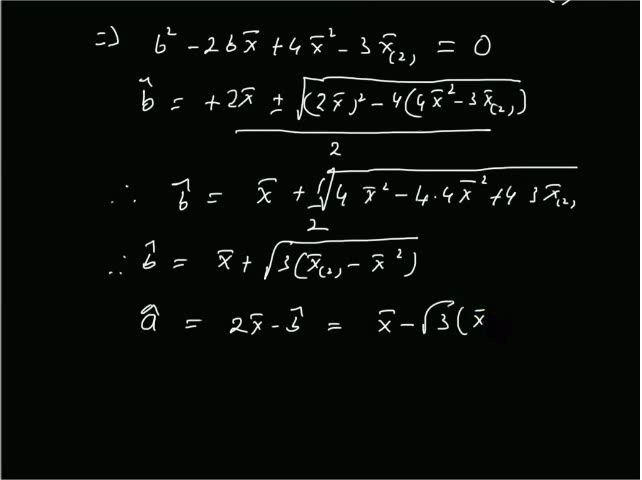 ⇒ b² - 2b x̄ + 4x̄² - 3x̄₍₂₎ = 0
b̂ = +2x̄ ± √((2x̄)² - 4(4x̄² - 3x̄₍₂₎)) / 2
∴ b̂ = x̄ + ½√(4x̄² - 4·4x̄² + 4 3x̄₍₂₎
∴ b̂ = x̄ + √(3(x̄₍₂₎ - x̄²))
â = 2x̄ - b̂ = x̄ - √3(x̄